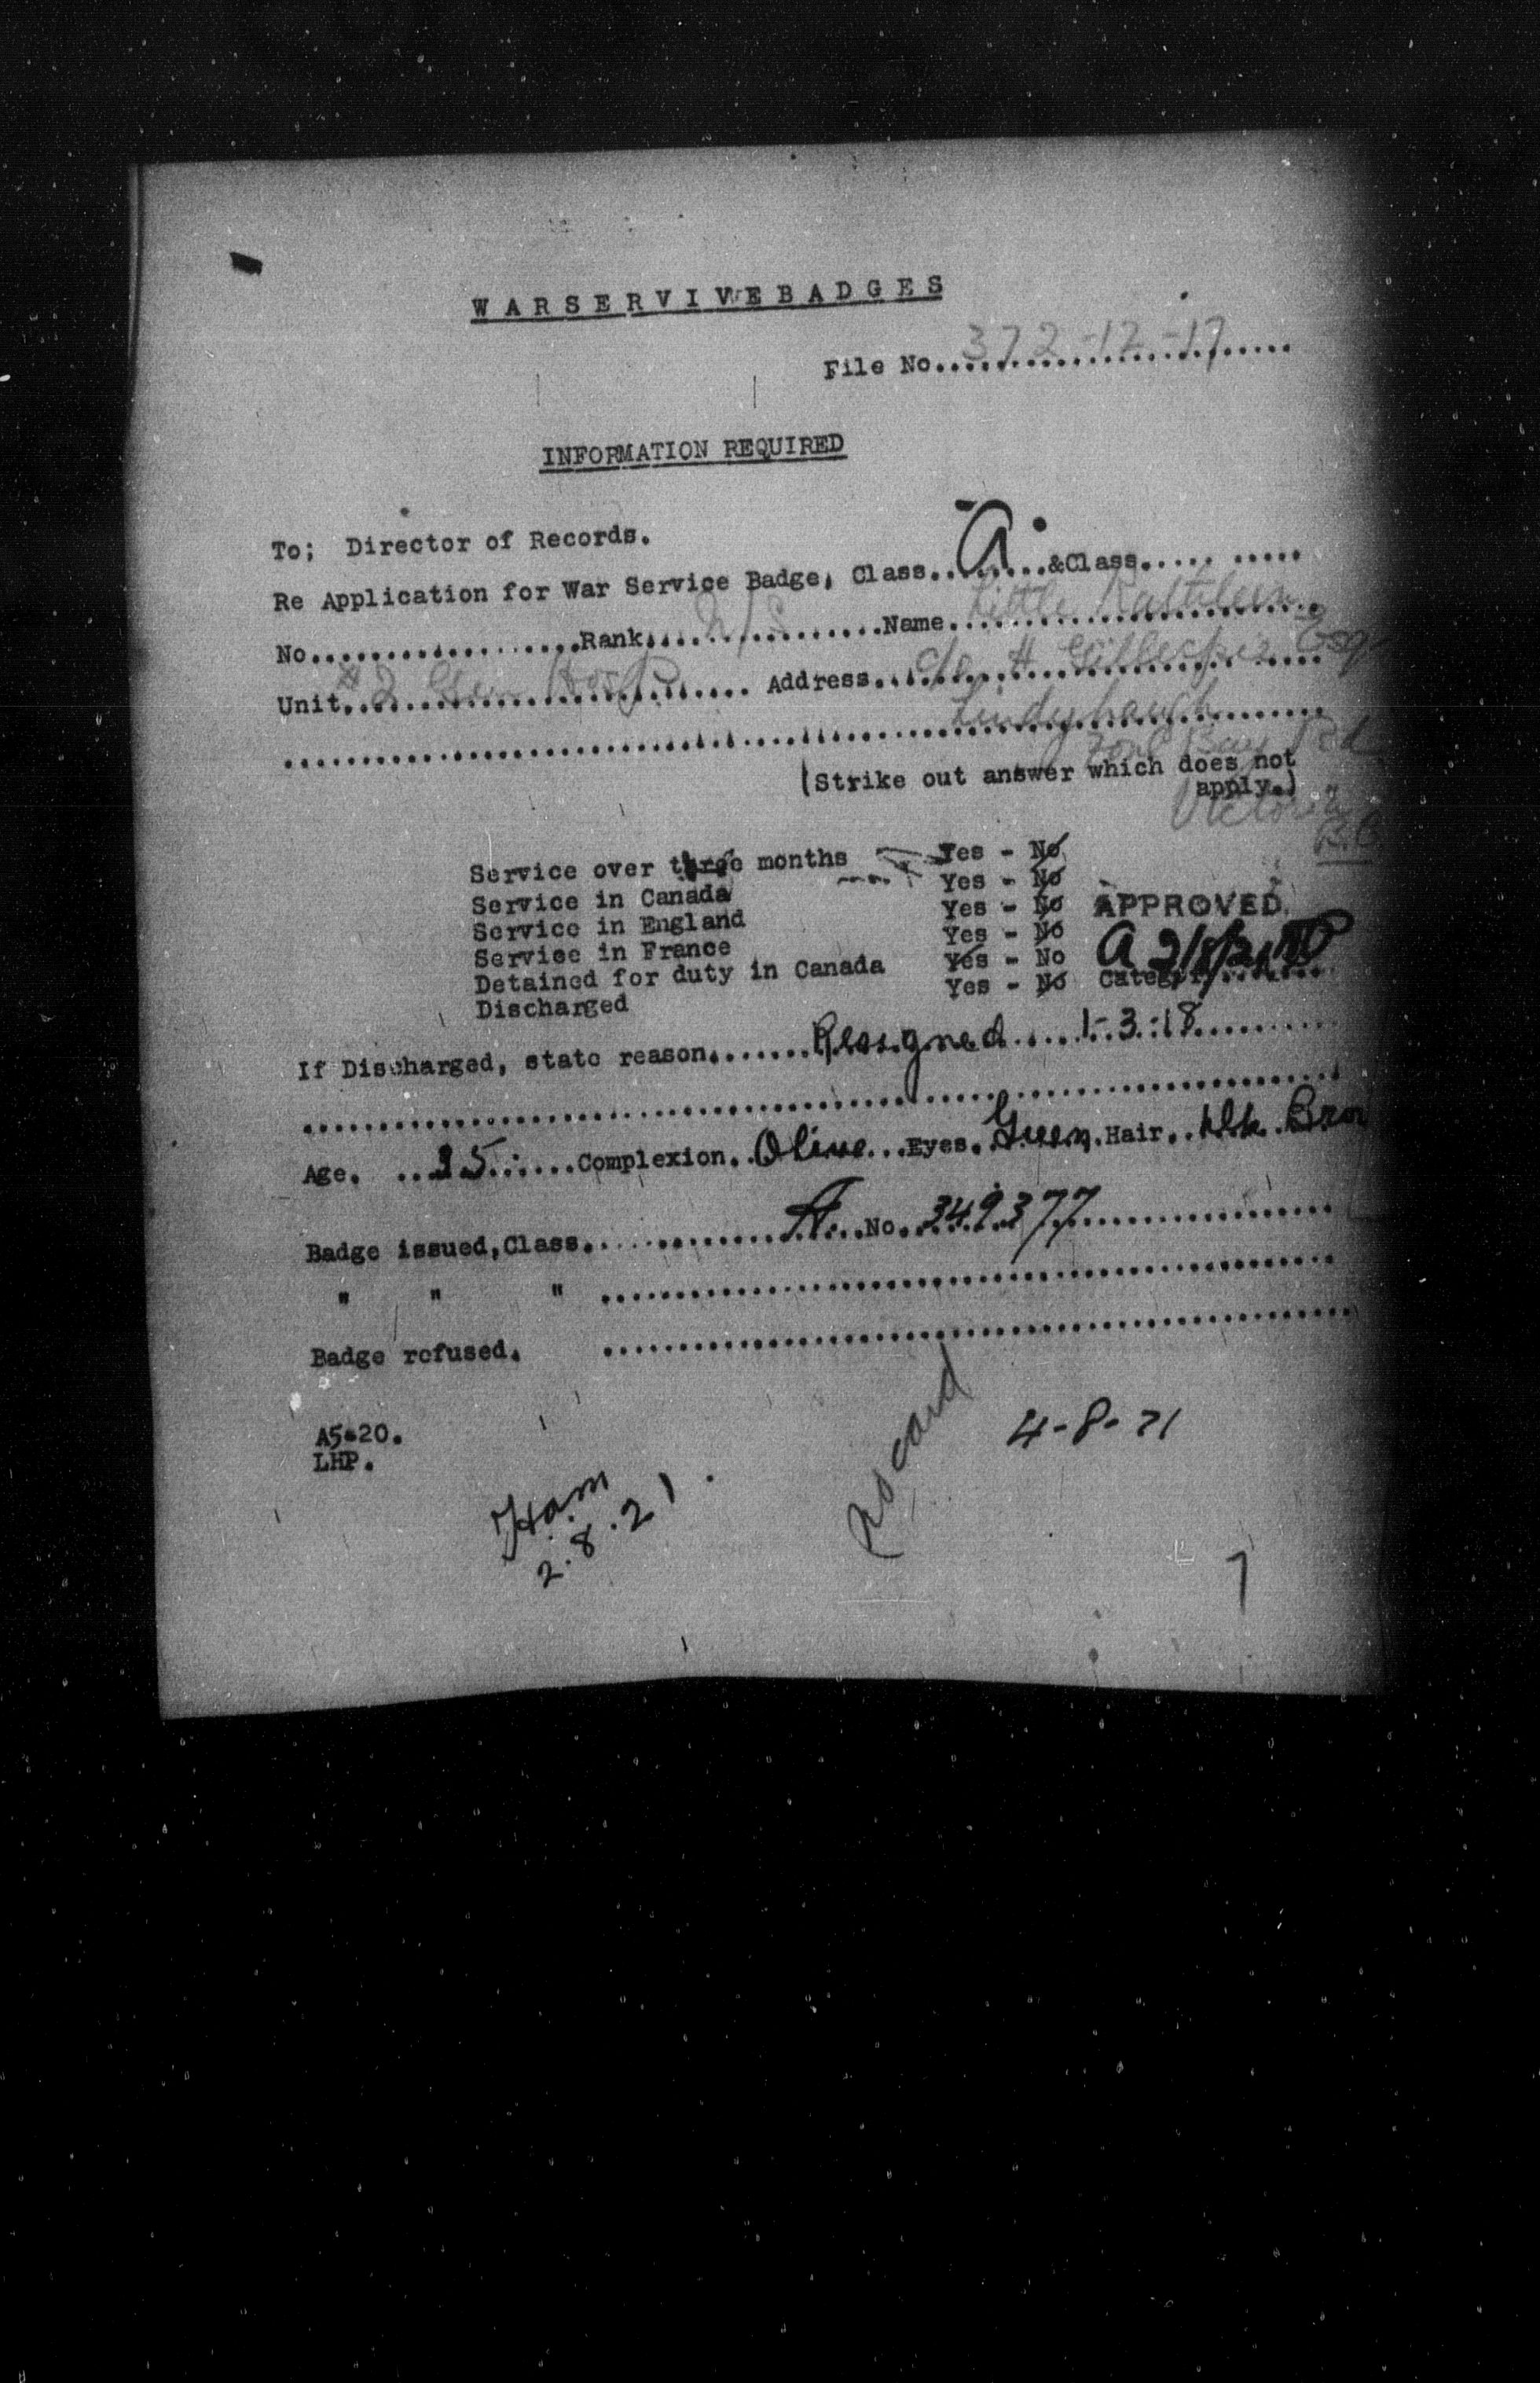 WAR SERVIVE BADGES
File No. 372-12-17
INFORMATION REQUIRED
To; Director of Records.
Re Application for War Service Badge, Class A &Class
No. Rank N/S Name Little Kathleen
Unit #2 Gen Hosp Address c/o H Gillespie Esq
Bay Rd
(Strike out answer which does not
apply.)
Victoria
B.C.
Service over three months Yes - No
Service in Canada Yes - No
Service in England Yes - No APPROVED
Service in France Yes - No
Detained for duty in Canada Yes - No A
Discharged Yes - No Category
If Discharged, state reason. Resigned 1-3-18
Age. 35 Complexion. Olive Eyes. Green Hair. Dk. Brow
Badge issued, Class. A No. 349377
" " "
Badge refused.
A5-20.
LHP.
no card
4-8-21
Ham
2.8.21